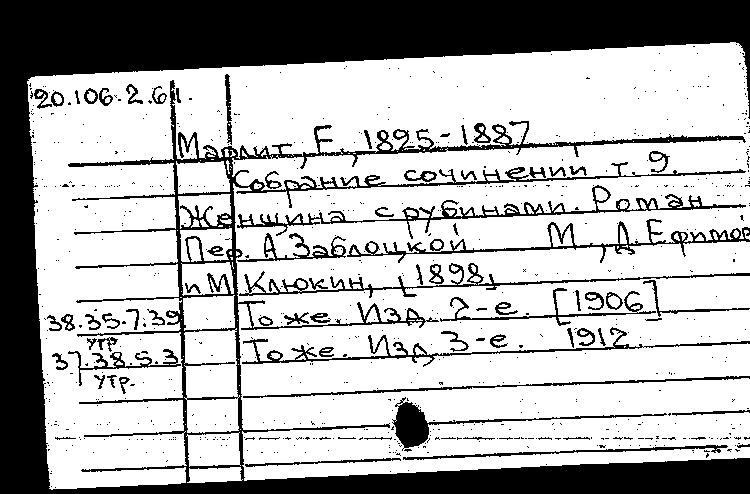 20.106.2.61.
Марлит, Е., 1825-1887
Собрание сочинений т. 9.
Женщина с рубинами. Роман.
Пер. А. Заблоцкой М., Д. Ефимов
и М. Клюкин, [1898]
38.35.7.39 То же. Изд. 2-е. [1906]
утр.
37.38.5.3 То же. Изд. 3-е. 1912.
утр.